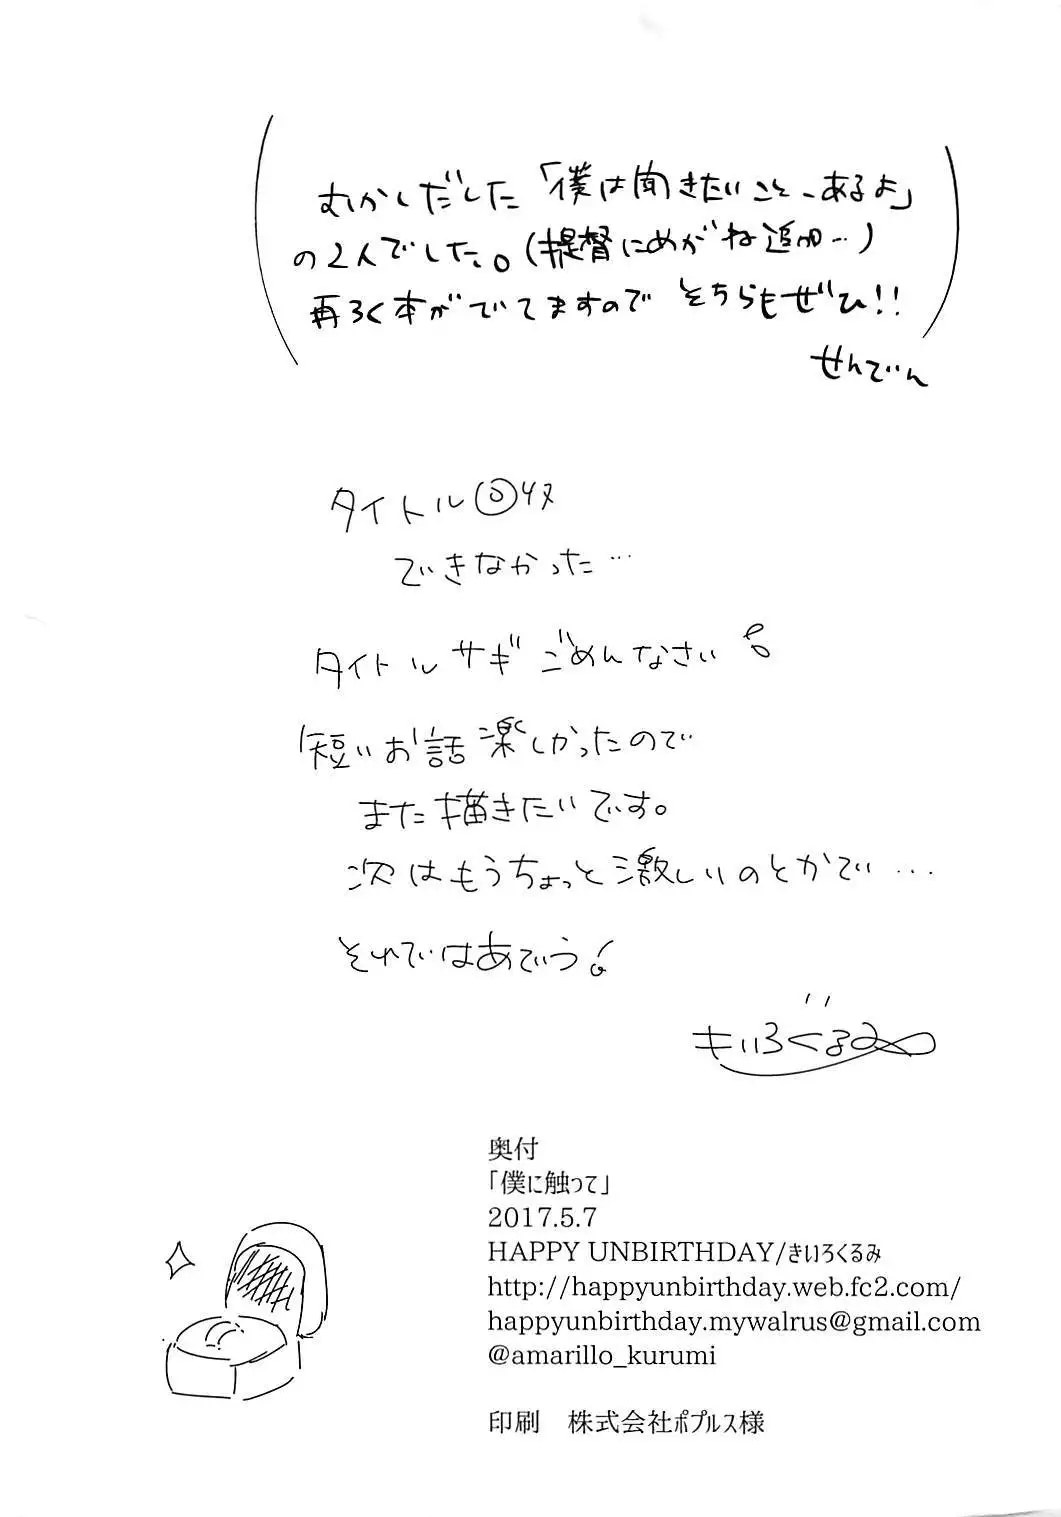 むかしだした「僕は聞きたいこと、あるよ」
の2人でした。(提督にめがね追加…)
再ろく本がでてますので そちらもぜひ!!
せんでん
タイトル回収
できなかった…
タイトルサギごめんなさい
短いお話楽しかったので
また描きたいです。
次はもうちょっと激しいのとかで…
それではあでゅう
きいろくるみ
奥付
「僕に触って」
2017.5.7
HAPPY UNBIRTHDAY/きいろくるみ
http://happyunbirthday.web.fc2.com/
happyunbirthday.mywalrus@gmail.com
@amarillo_kurumi
印刷　株式会社ポプルス様